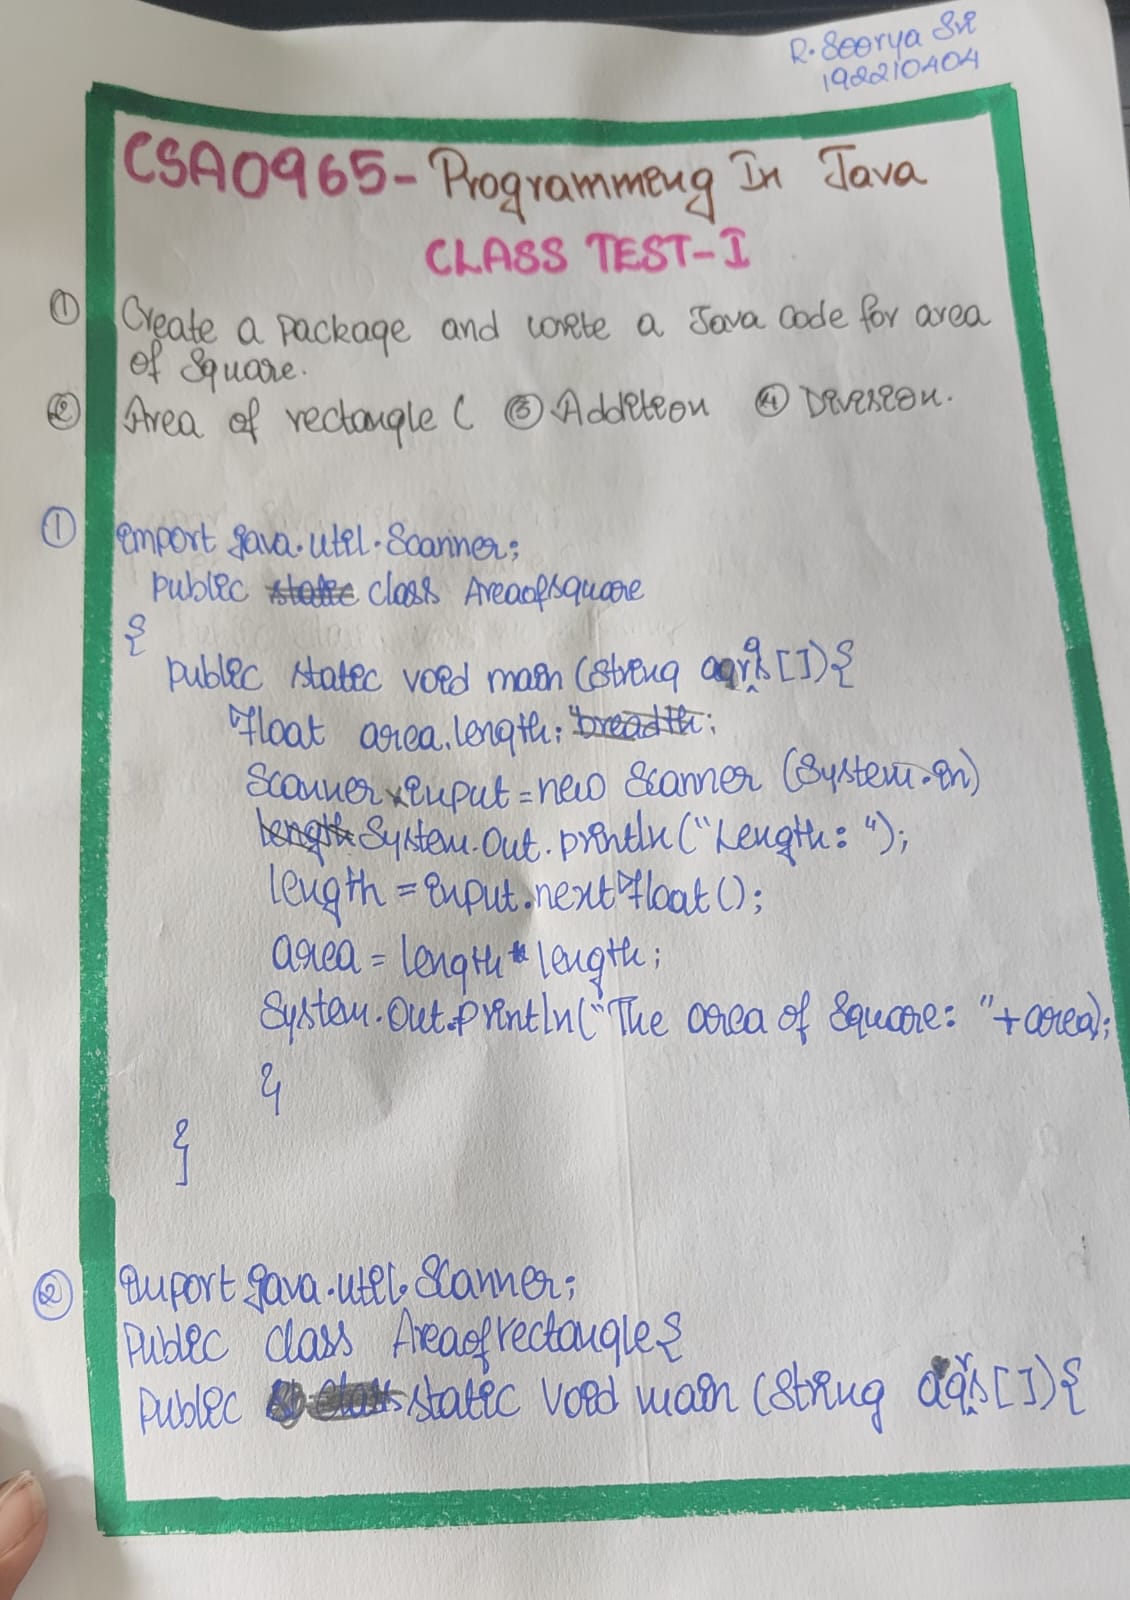 R. Soorya Sri
192210404
CSA0965- Programming In Java
CLASS TEST-I
① Create a package and write a Java code for area
of Square.
② Area of rectangle ( ③ Addition ④ Division.
① import java.util.Scanner;
public static class Areaofsquare
{
public static void main (String args []) {
Float area, length; breadth;
Scanner input = new Scanner (System.in)
length System.out.println("Length: ");
length = input.nextFloat();
area = length * length;
System.out.println("The area of Square: "+area);
}
}
② import java.util.Scanner;
Public class Areaofrectangle {
Public class static void main (String args []) {